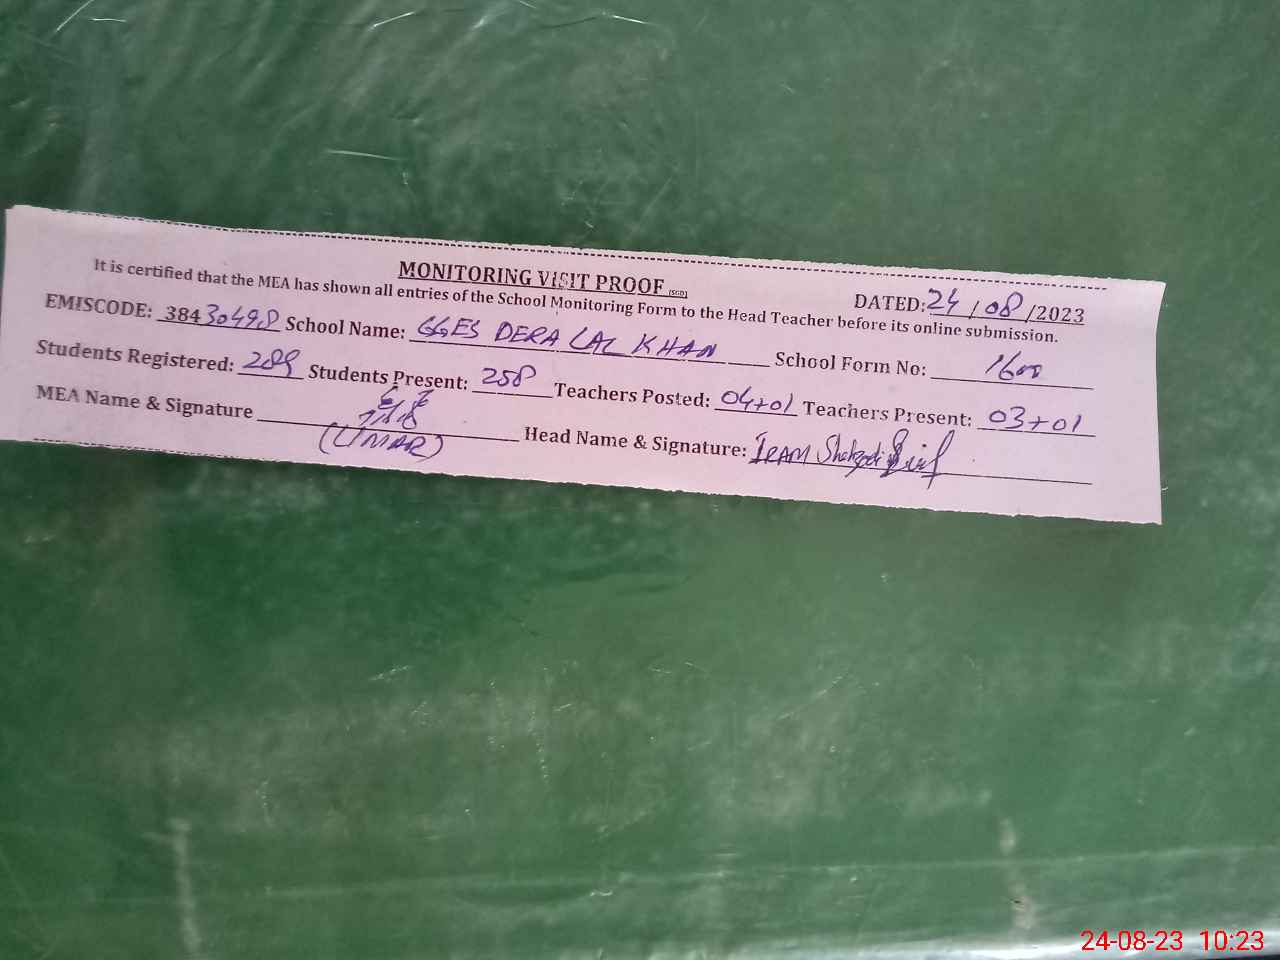 MONITORING VISIT PROOF (SGD)
DATED: 24 / 08 /2023
It is certified that the MEA has shown all entries of the School Monitoring Form to the Head Teacher before its online submission.
EMISCODE: 38430498 School Name: GGES DERA LAL KHAN School Form No: 1600
Students Registered: 289 Students Present: 258 Teachers Posted: 04+01 Teachers Present: 03+01
MEA Name & Signature (UMAR) Head Name & Signature: IRAM Shahzadi
24-08-23 10:23